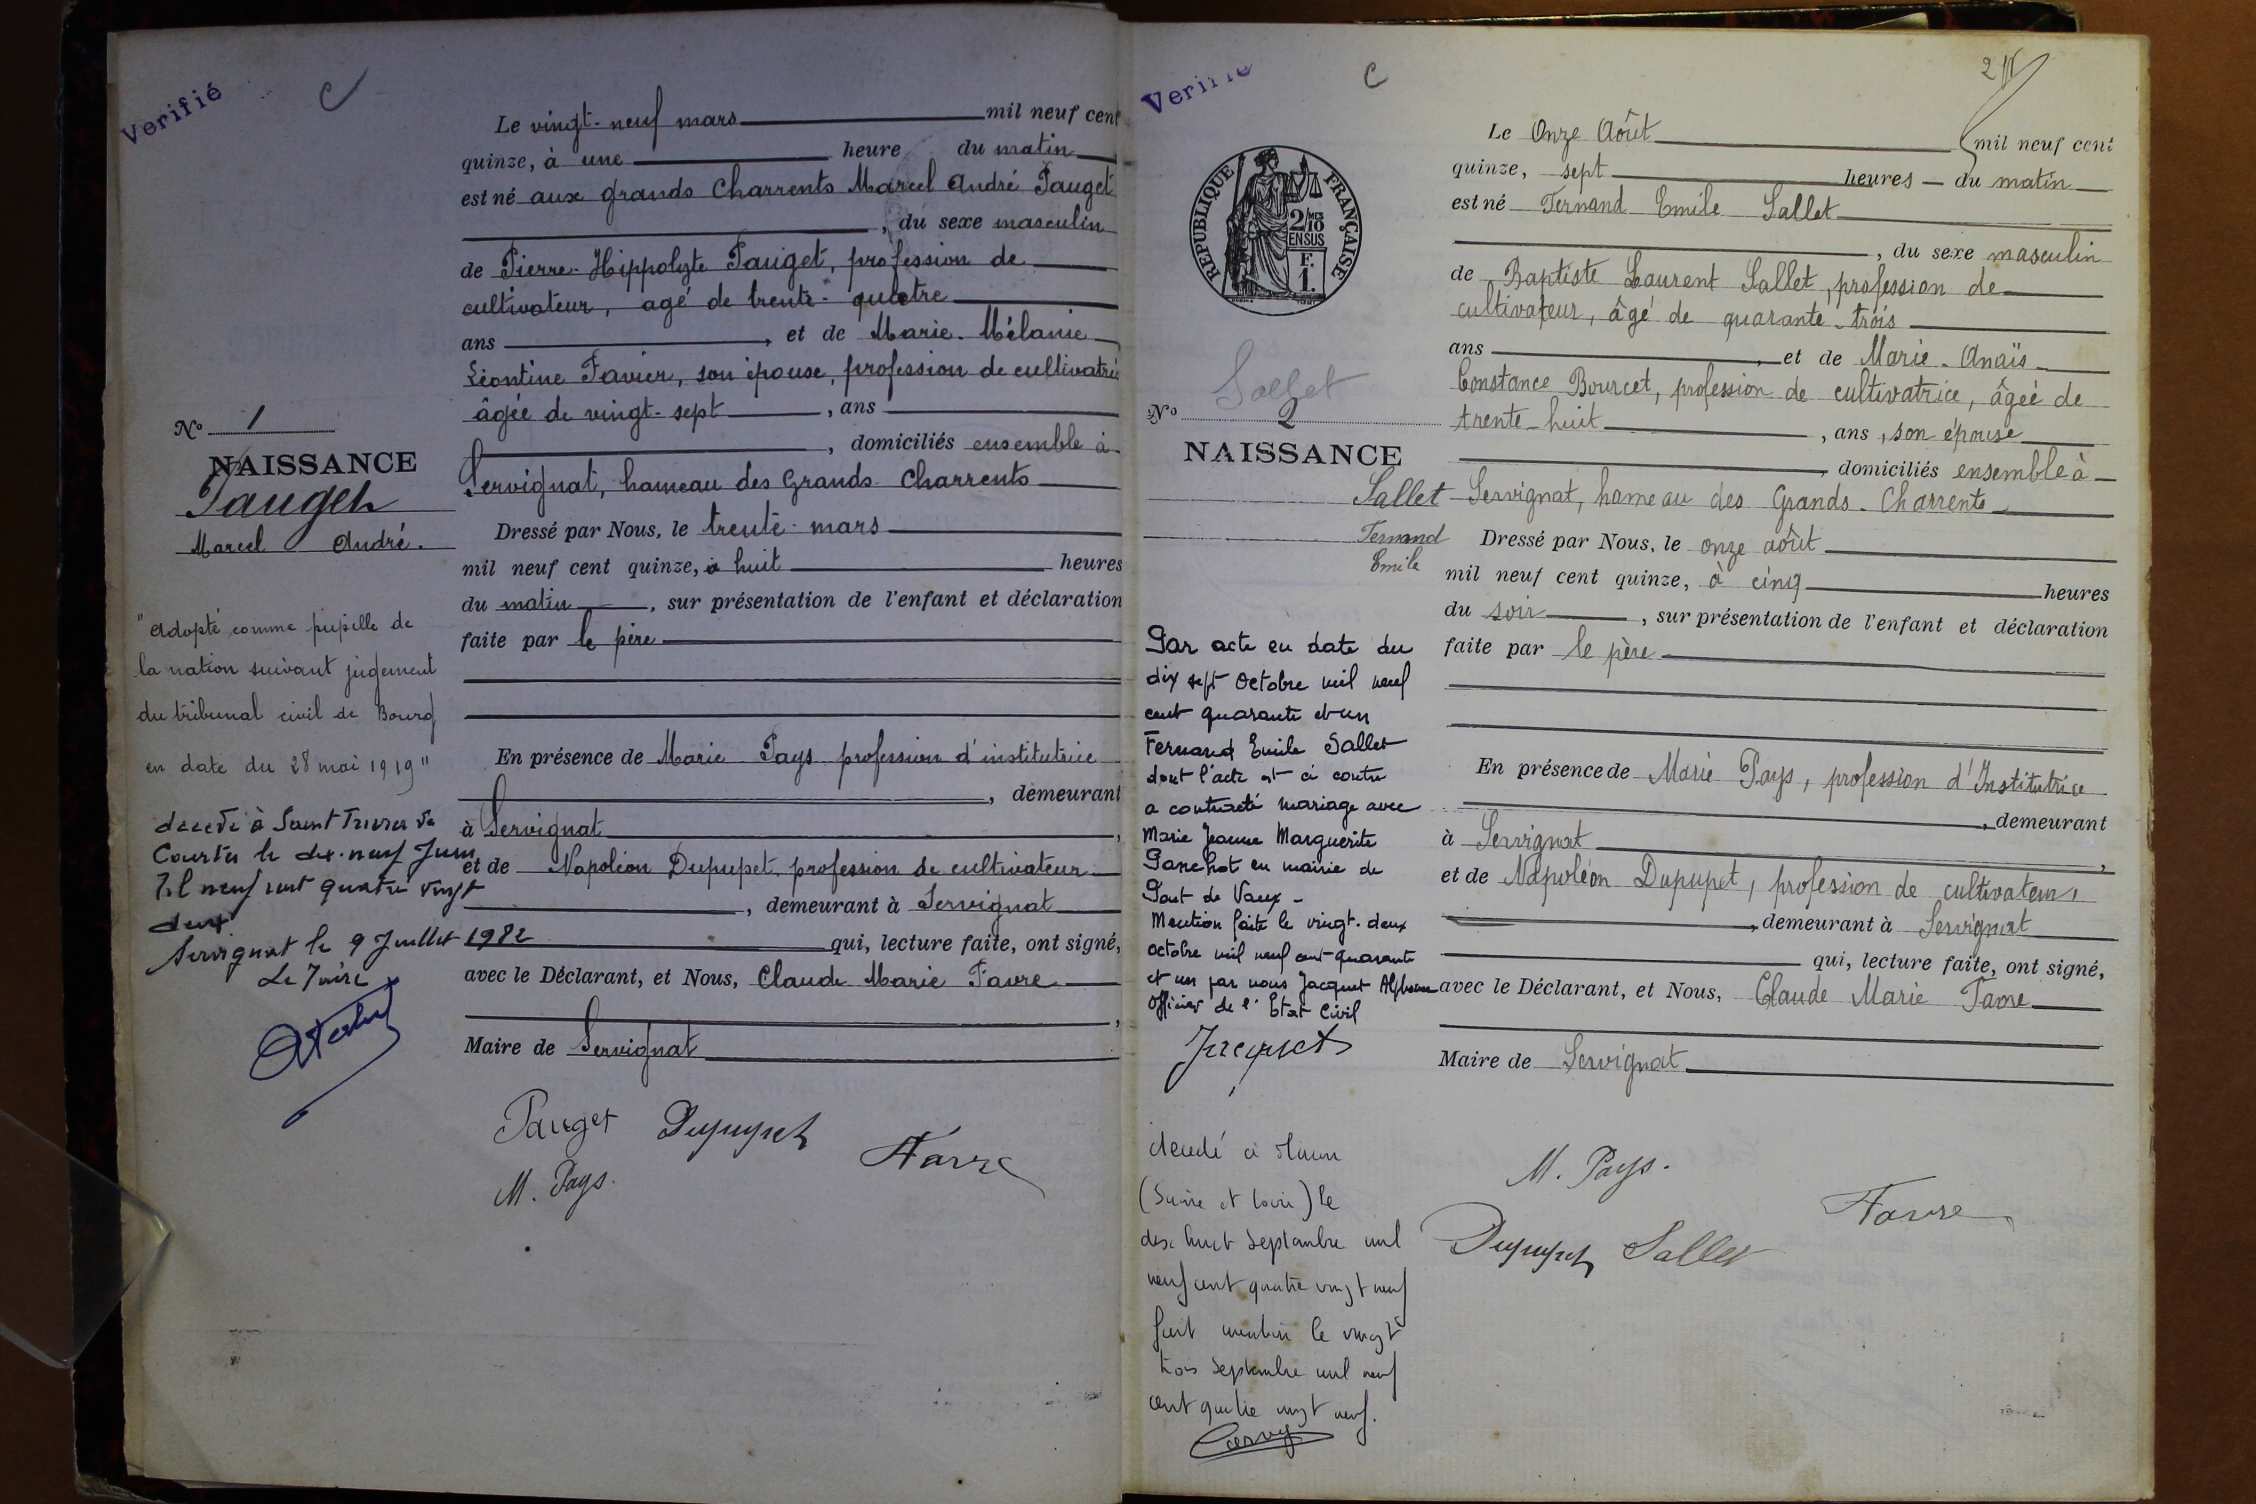 Verifié
C
Le vingt-neuf mars mil neuf cent
quinze, à une heure du matin
est né aux grands Charrents Marcel André Pauget
, du sexe masculin
de Pierre-Hippolyte Pauget, profession de
cultivateur, agé de trente-quatre
ans , et de Marie-Mélanie
Léontine Favier, son épouse, profession de cultivatrice
âgée de vingt-sept , ans
, domiciliés ensemble à
Servignat, hameau des Grands Charrents
Dressé par Nous, le trente-mars
mil neuf cent quinze, à huit heures
du matin , sur présentation de l'enfant et déclaration
faite par le père
En présence de Marie Pays profession d'institutrice
, demeurant
à Servignat ,
et de Napoléon Dupupet, profession de cultivateur
, demeurant à Servignat
qui, lecture faite, ont signé,
avec le Déclarant, et Nous, Claude Marie Favre
,
Maire de Servignat
Pauget Dupupet Favre
M. Pays.
No 1
NAISSANCE
Pauget
Marcel André.
"Adopté comme pupille de
la nation suivant jugement
du tribunal civil de Bourg
en date du 28 mai 1919"
décédé à Saint Trivier de
Courtes le dix-neuf Juin
Mil neuf cent quatre vingt
deux.
Servignat le 9 Juillet 1982
Le Maire
Verifié
C
2
RÉPUBLIQUE FRANÇAISE
2/10 MES
EN SUS
F.
1.
Le Onze Août mil neuf cent
quinze, sept heures du matin
est né Fernand Emile Sallet
, du sexe masculin
de Baptiste Laurent Sallet, profession de
cultivateur, âgé de quarante-trois
ans , et de Marie-Anaïs
Constance Bourcet, profession de cultivatrice, âgée de
trente-huit , ans , son épouse
, domiciliés ensemble à
Servignat, hameau des Grands-Charrents
Dressé par Nous, le onze août
mil neuf cent quinze, à cinq heures
du soir , sur présentation de l'enfant et déclaration
faite par le père
En présence de Marie Pays, profession d'Institutrice
, demeurant
à Servignat ,
et de Napoléon Dupupet, profession de cultivateur,
, demeurant à Servignat
qui, lecture faite, ont signé,
avec le Déclarant, et Nous, Claude Marie Favre
Maire de Servignat
M. Pays.
Favre
Dupupet Sallet
Sallet
No 2
NAISSANCE
Sallet
Fernand
Emile
Par acte en date du
dix sept octobre mil neuf
cent quarante et un
Fernand Emile Sallet
dont l'acte est ci contre
a contracté mariage avec
Marie Jeanne Marguerite
Panchot en mairie de
Pont de Vaux -
Mention faite le vingt-deux
octobre mil neuf cent quarante
et un par nous Jacquet Alphonse
officier de l'Etat Civil
Jacquet
décédé à Macon
(Saône et Loire) le
dix huit septembre mil
neuf cent quatre vingt neuf
fait mention le vingt
trois septembre mil neuf
cent quatre vingt neuf.